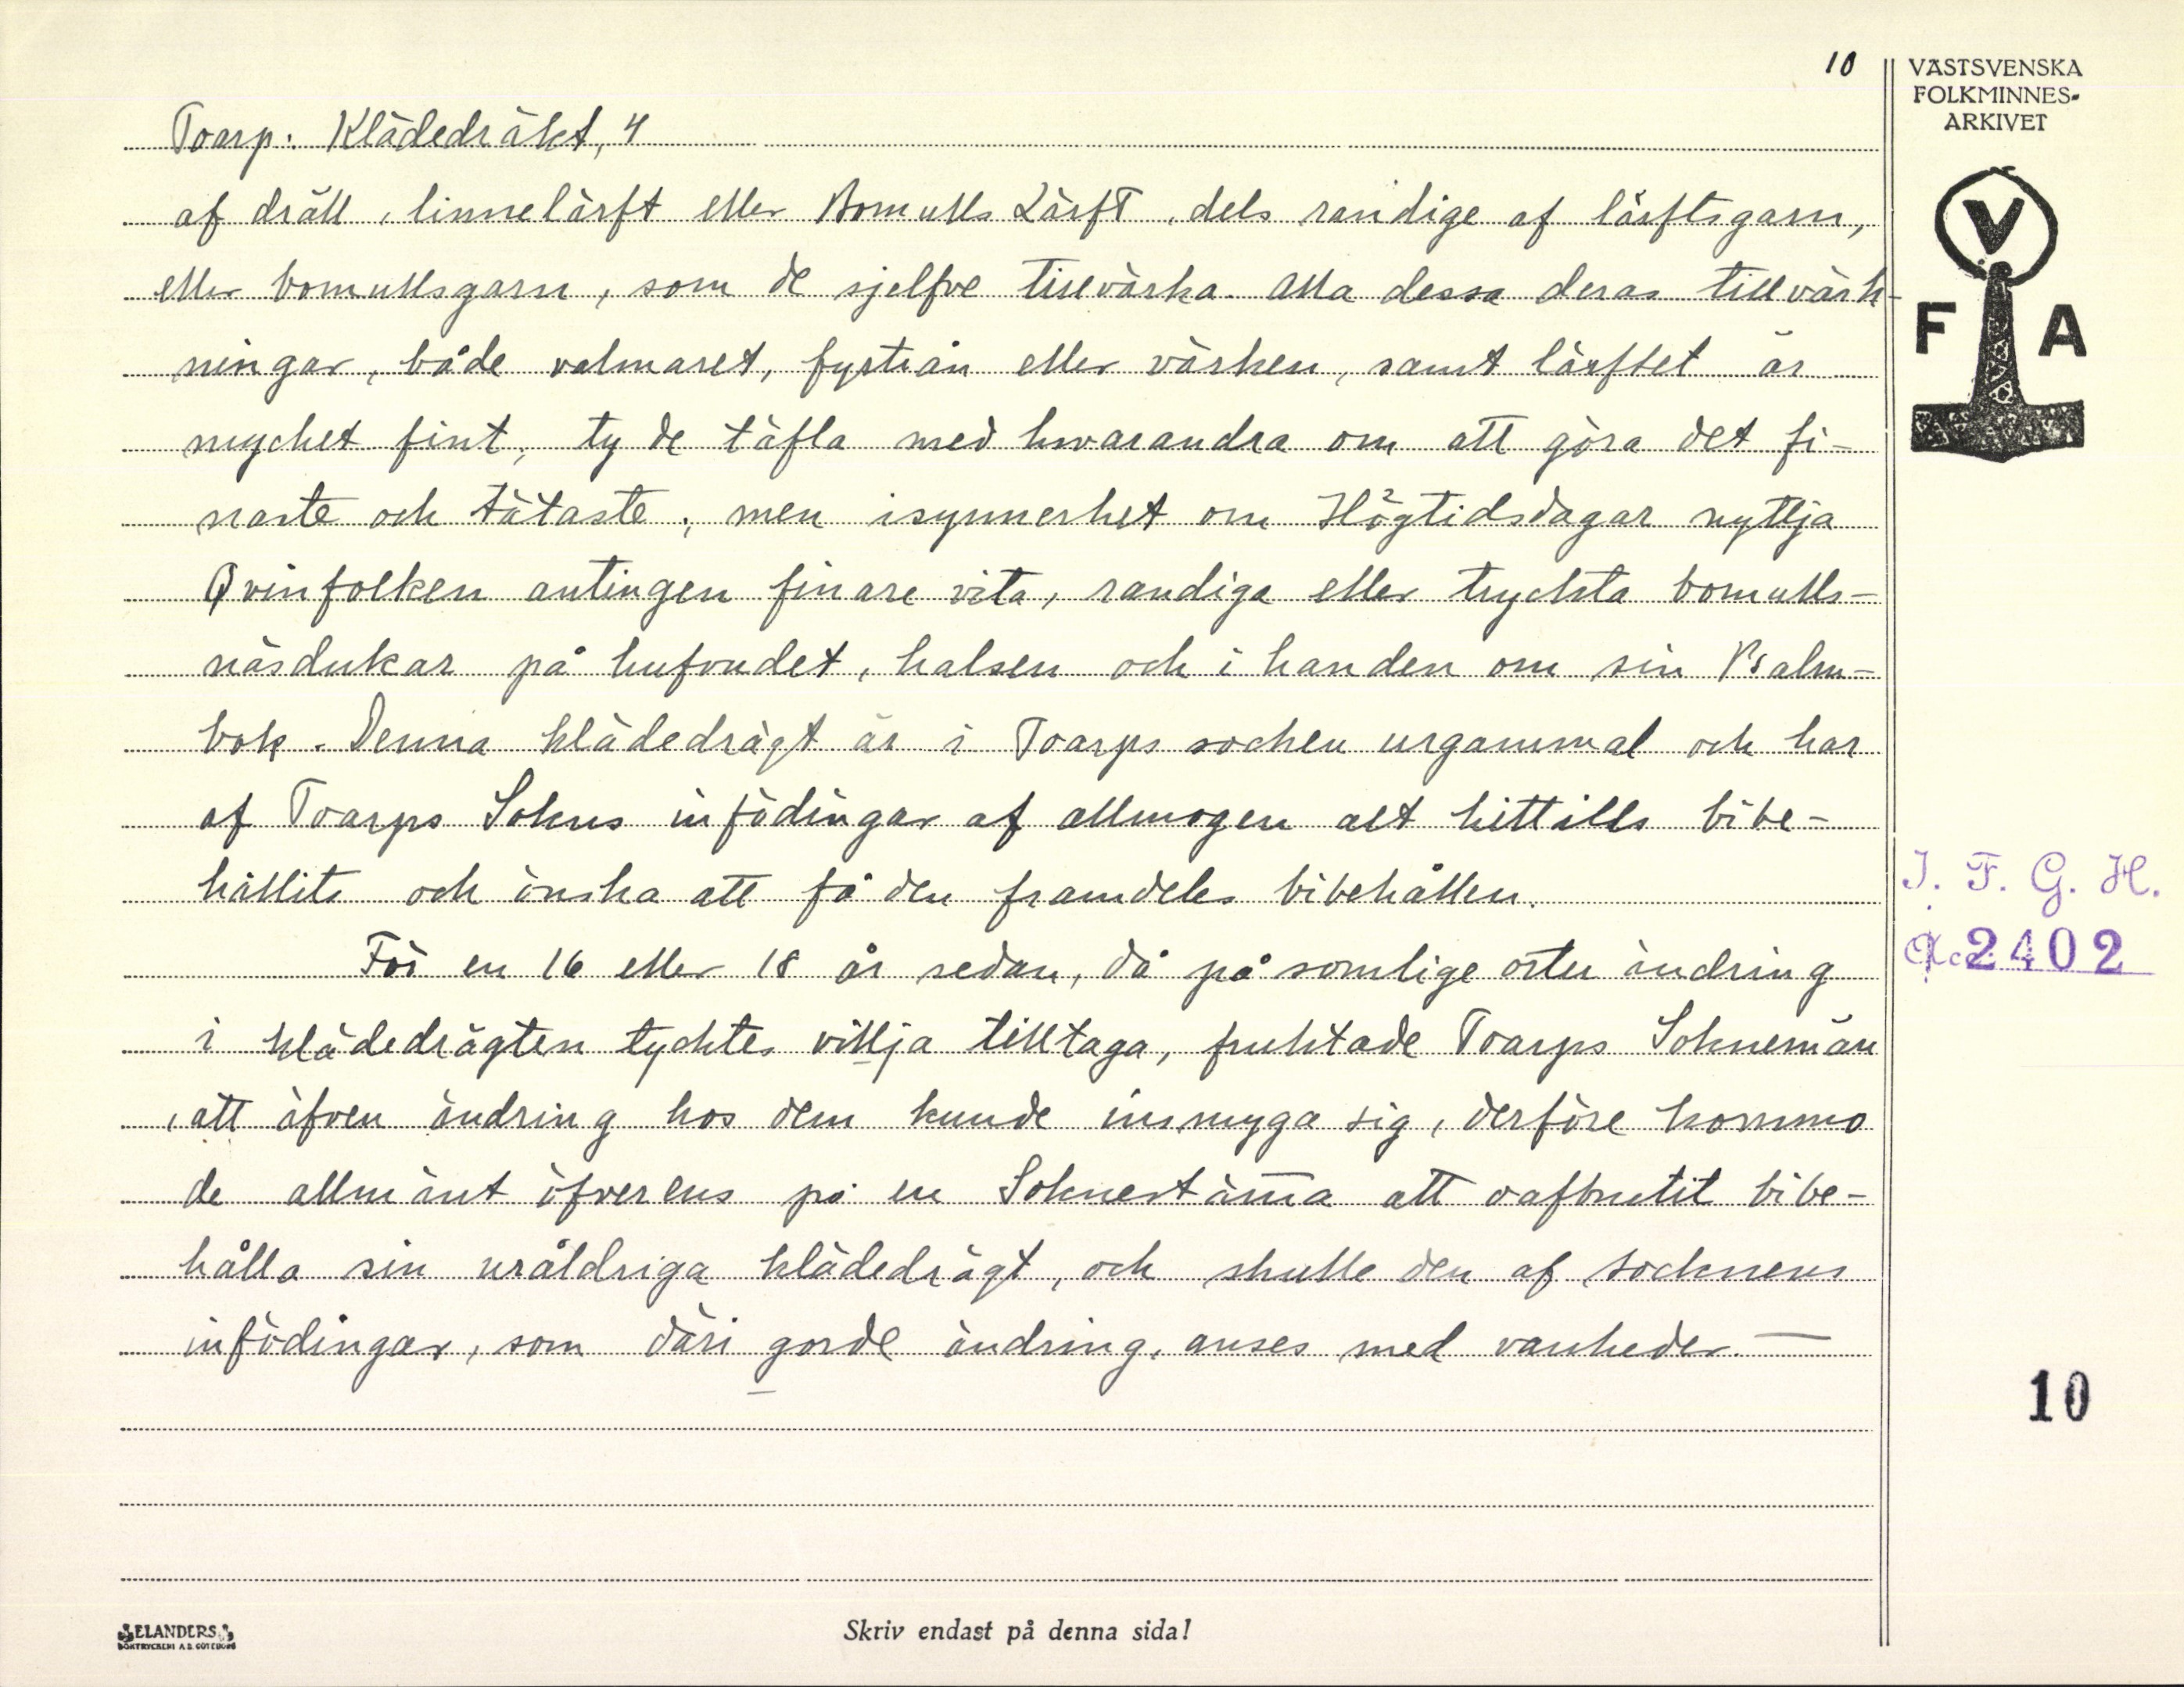 10
VÄSTSVENSKA
FOLKMINNES-
ARKIVET
V
F A
Toarp: Klädedräkt, 4
af dräll, linnelärft eller Bomulls Lärft, dels randige af lärftsgarn,
eller bomullsgarn, som de sjelfve tillvärka. Alla dessa deras tillvärk-
ningar, både valmaret, fystian eller värken, samt lärftet är
mycket fint, ty de täfla med hwarandra om att göra det fi-
naste och tätaste; men isynnerhet om Högtidsdagar nyttja
Qvinfolken antingen finare vita, randiga eller tryckta bomulls-
näsdukar på hufvudet, halsen och i handen om sin Psalm-
bok. Denna klädedrägt är i Toarps socken urgammal och har
af Toarps Sokns infödingar af allmogen alt hittills bibe-
hållits och önska att få den framdeles bibehållen.
För en 16 eller 18 år sedan, då på somlige orter ändring
i klädedrägten tycktes villja tilltaga, fruktade Toarps Soknemän
, att äfven ändring hos dem kunde insmyga sig, derföre kommo
de allmänt öfverens på en Soknestäm̅a att oafbrutit bibe-
hålla sin uråldriga klädedrägt, och skulle den af socknens
infödingar, som däri gorde ändring, anses med vanheder. —
I. F. G. H.
Acc. 2402
10
ELANDERS
BOKTRYCKERI A.B. GÖTEBORG
Skriv endast på denna sida!